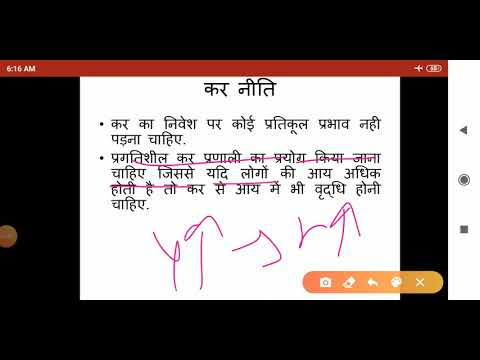 6:16 AM
कर नीति
• कर का निवेश पर कोई प्रतिकूल प्रभाव नही
पड़ना चाहिए.
• प्रगतिशील कर प्रणाली का प्रयोग किया जाना
चाहिए जिससे यदि लोगों की आय अधिक
होती है तो कर से आय में भी वृद्धि होनी
चाहिए.
Y↑ → r↑